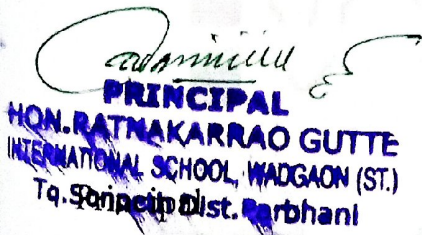 PRINCIPAL
HON.RATNAKARRAO GUTTE
INTERNATIONAL SCHOOL, WADGAON (ST.)
Tq. Dist. Parbhani
Principal